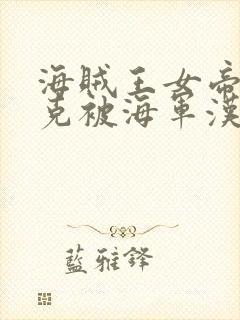 海賊王女帝
克被海軍漢
藍雅鋒